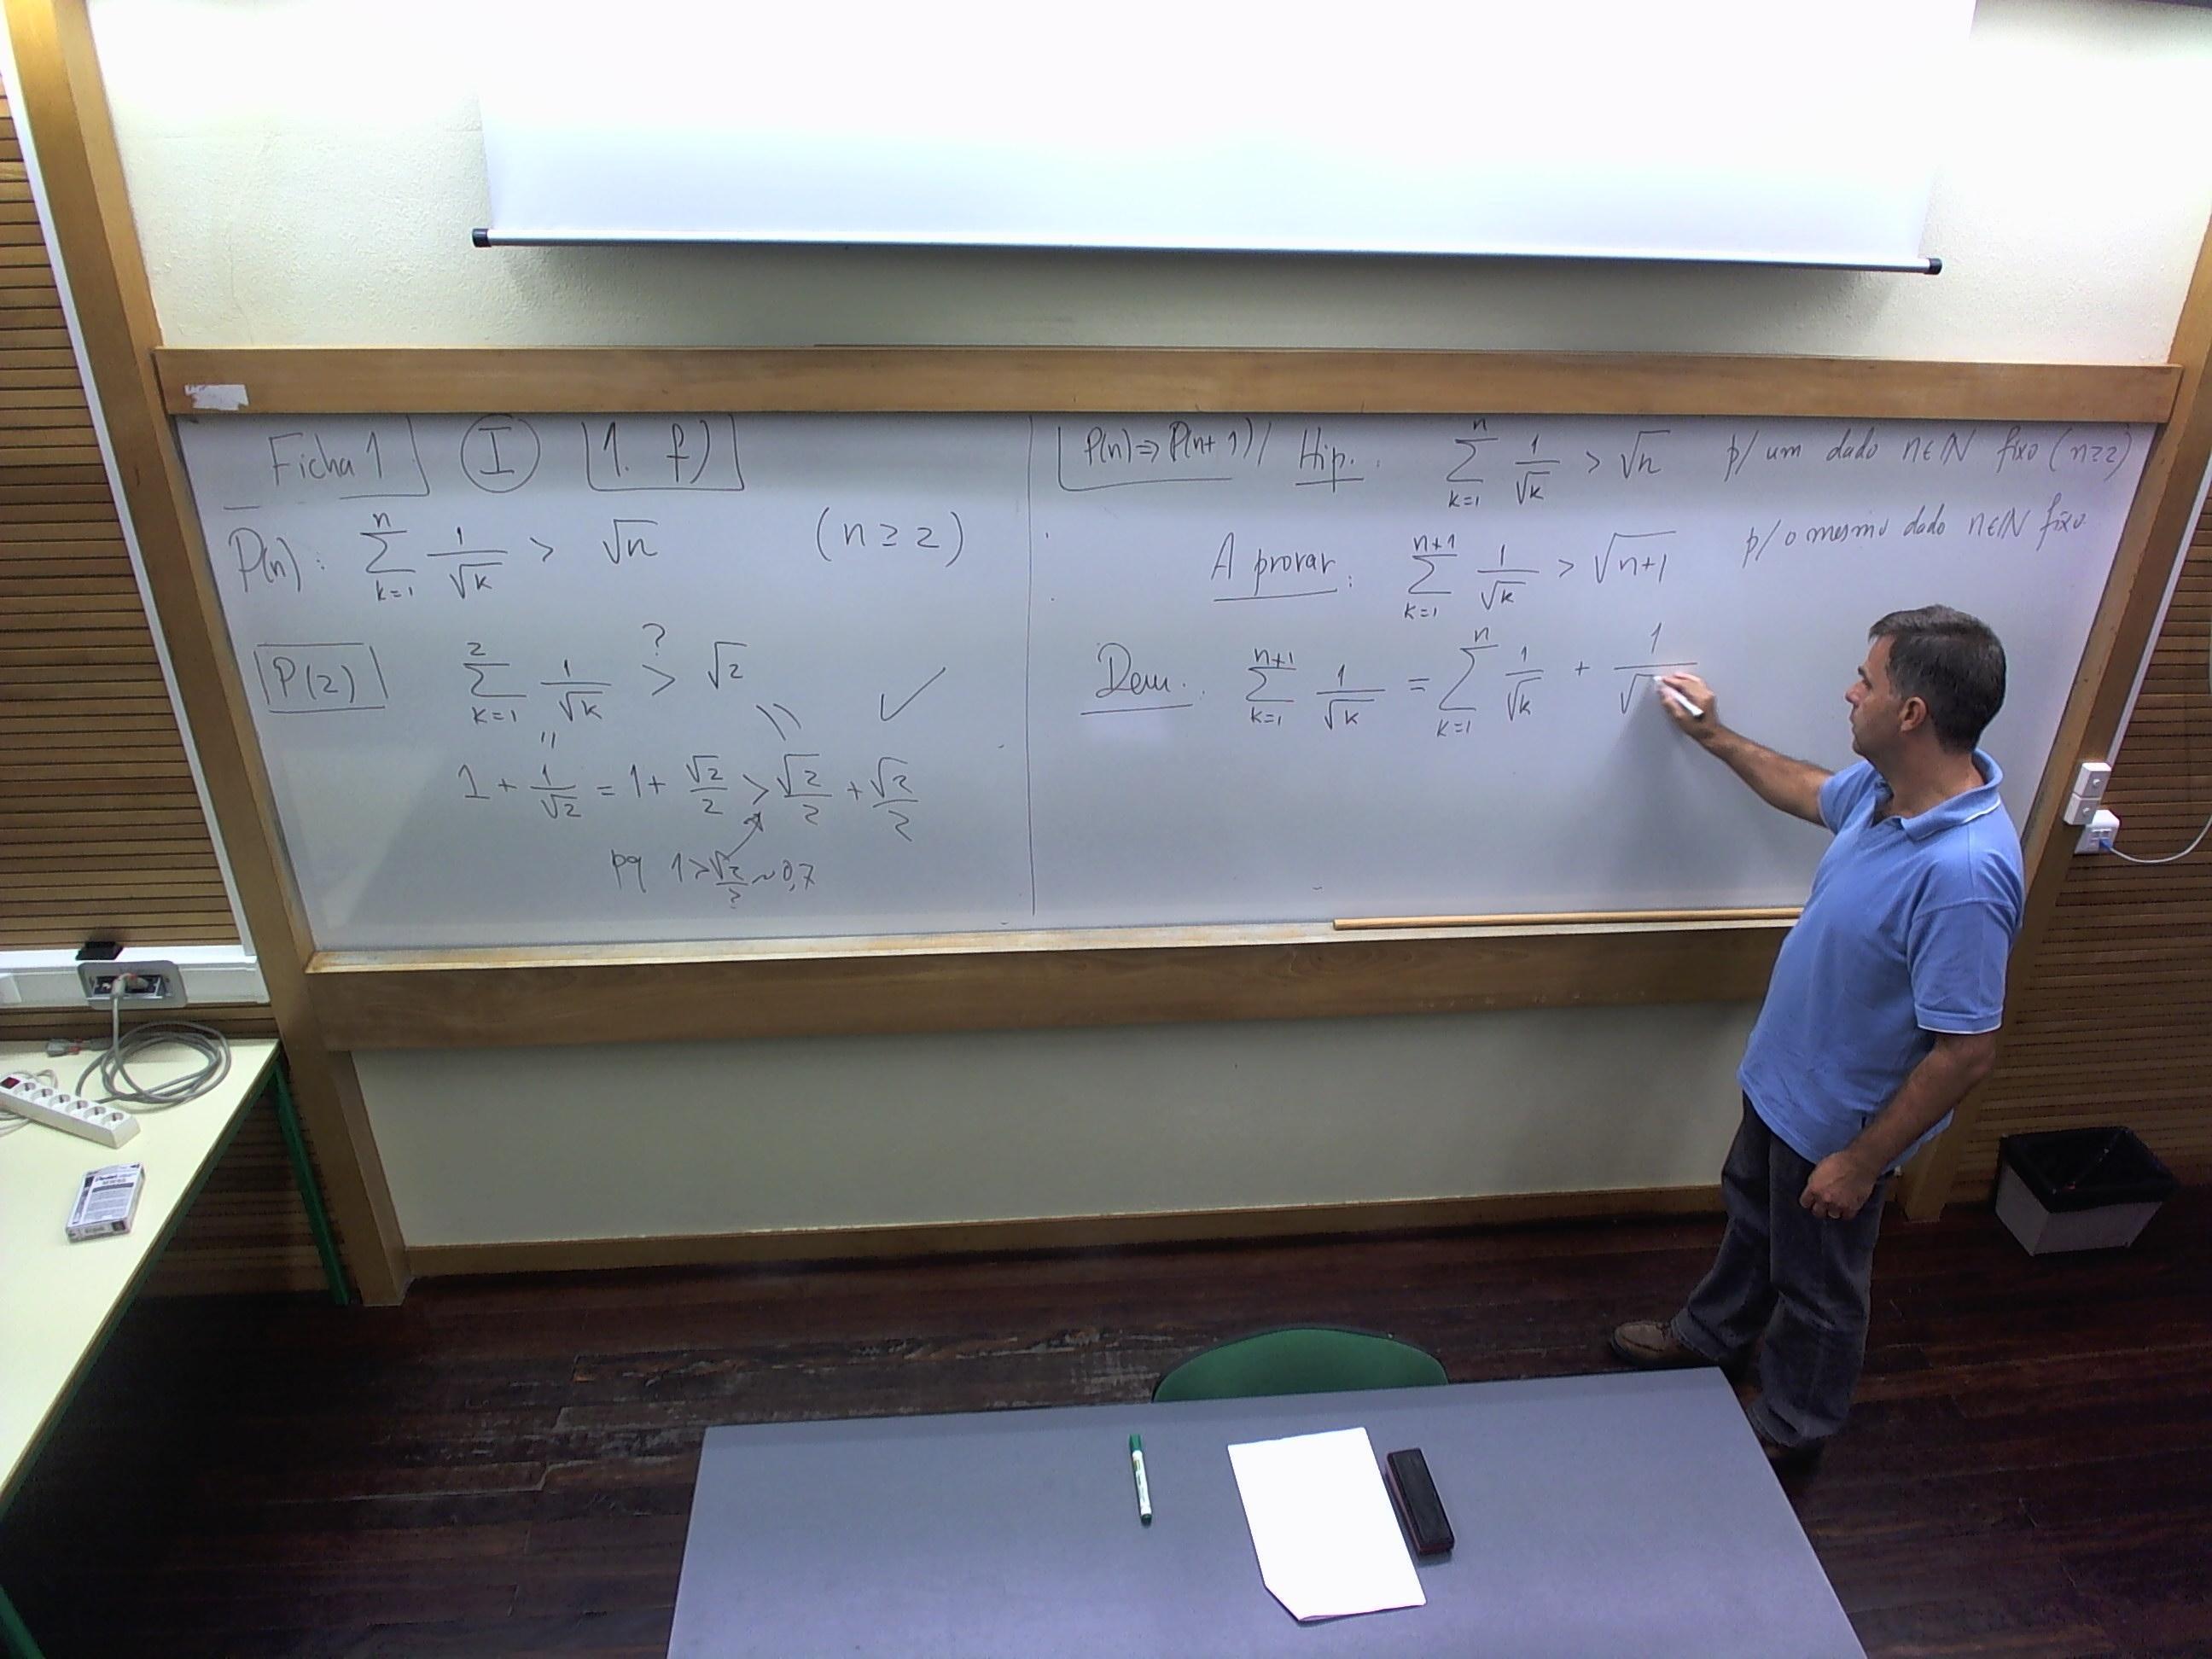 Ficha 1 I 1. f)
P(n): ∑_{k=1}^{n} 1/√k > √n (n ≥ 2)
P(2) ∑_{k=1}^{2} 1/√k >^{?} √2 ✓
1 + 1/√2 = 1 + √2/2 > √2/2 + √2/2
pq 1 > √2/2 ~ 0,7
P(n) ⇒ P(n+1) / Hip.: ∑_{k=1}^{n} 1/√k > √n p/ um dado n∈ℕ fixo (n≥2)
A provar: ∑_{k=1}^{n+1} 1/√k > √(n+1) p/ o mesmo dado n∈ℕ fixo
Dem.: ∑_{k=1}^{n+1} 1/√k = ∑_{k=1}^{n} 1/√k + 1/√